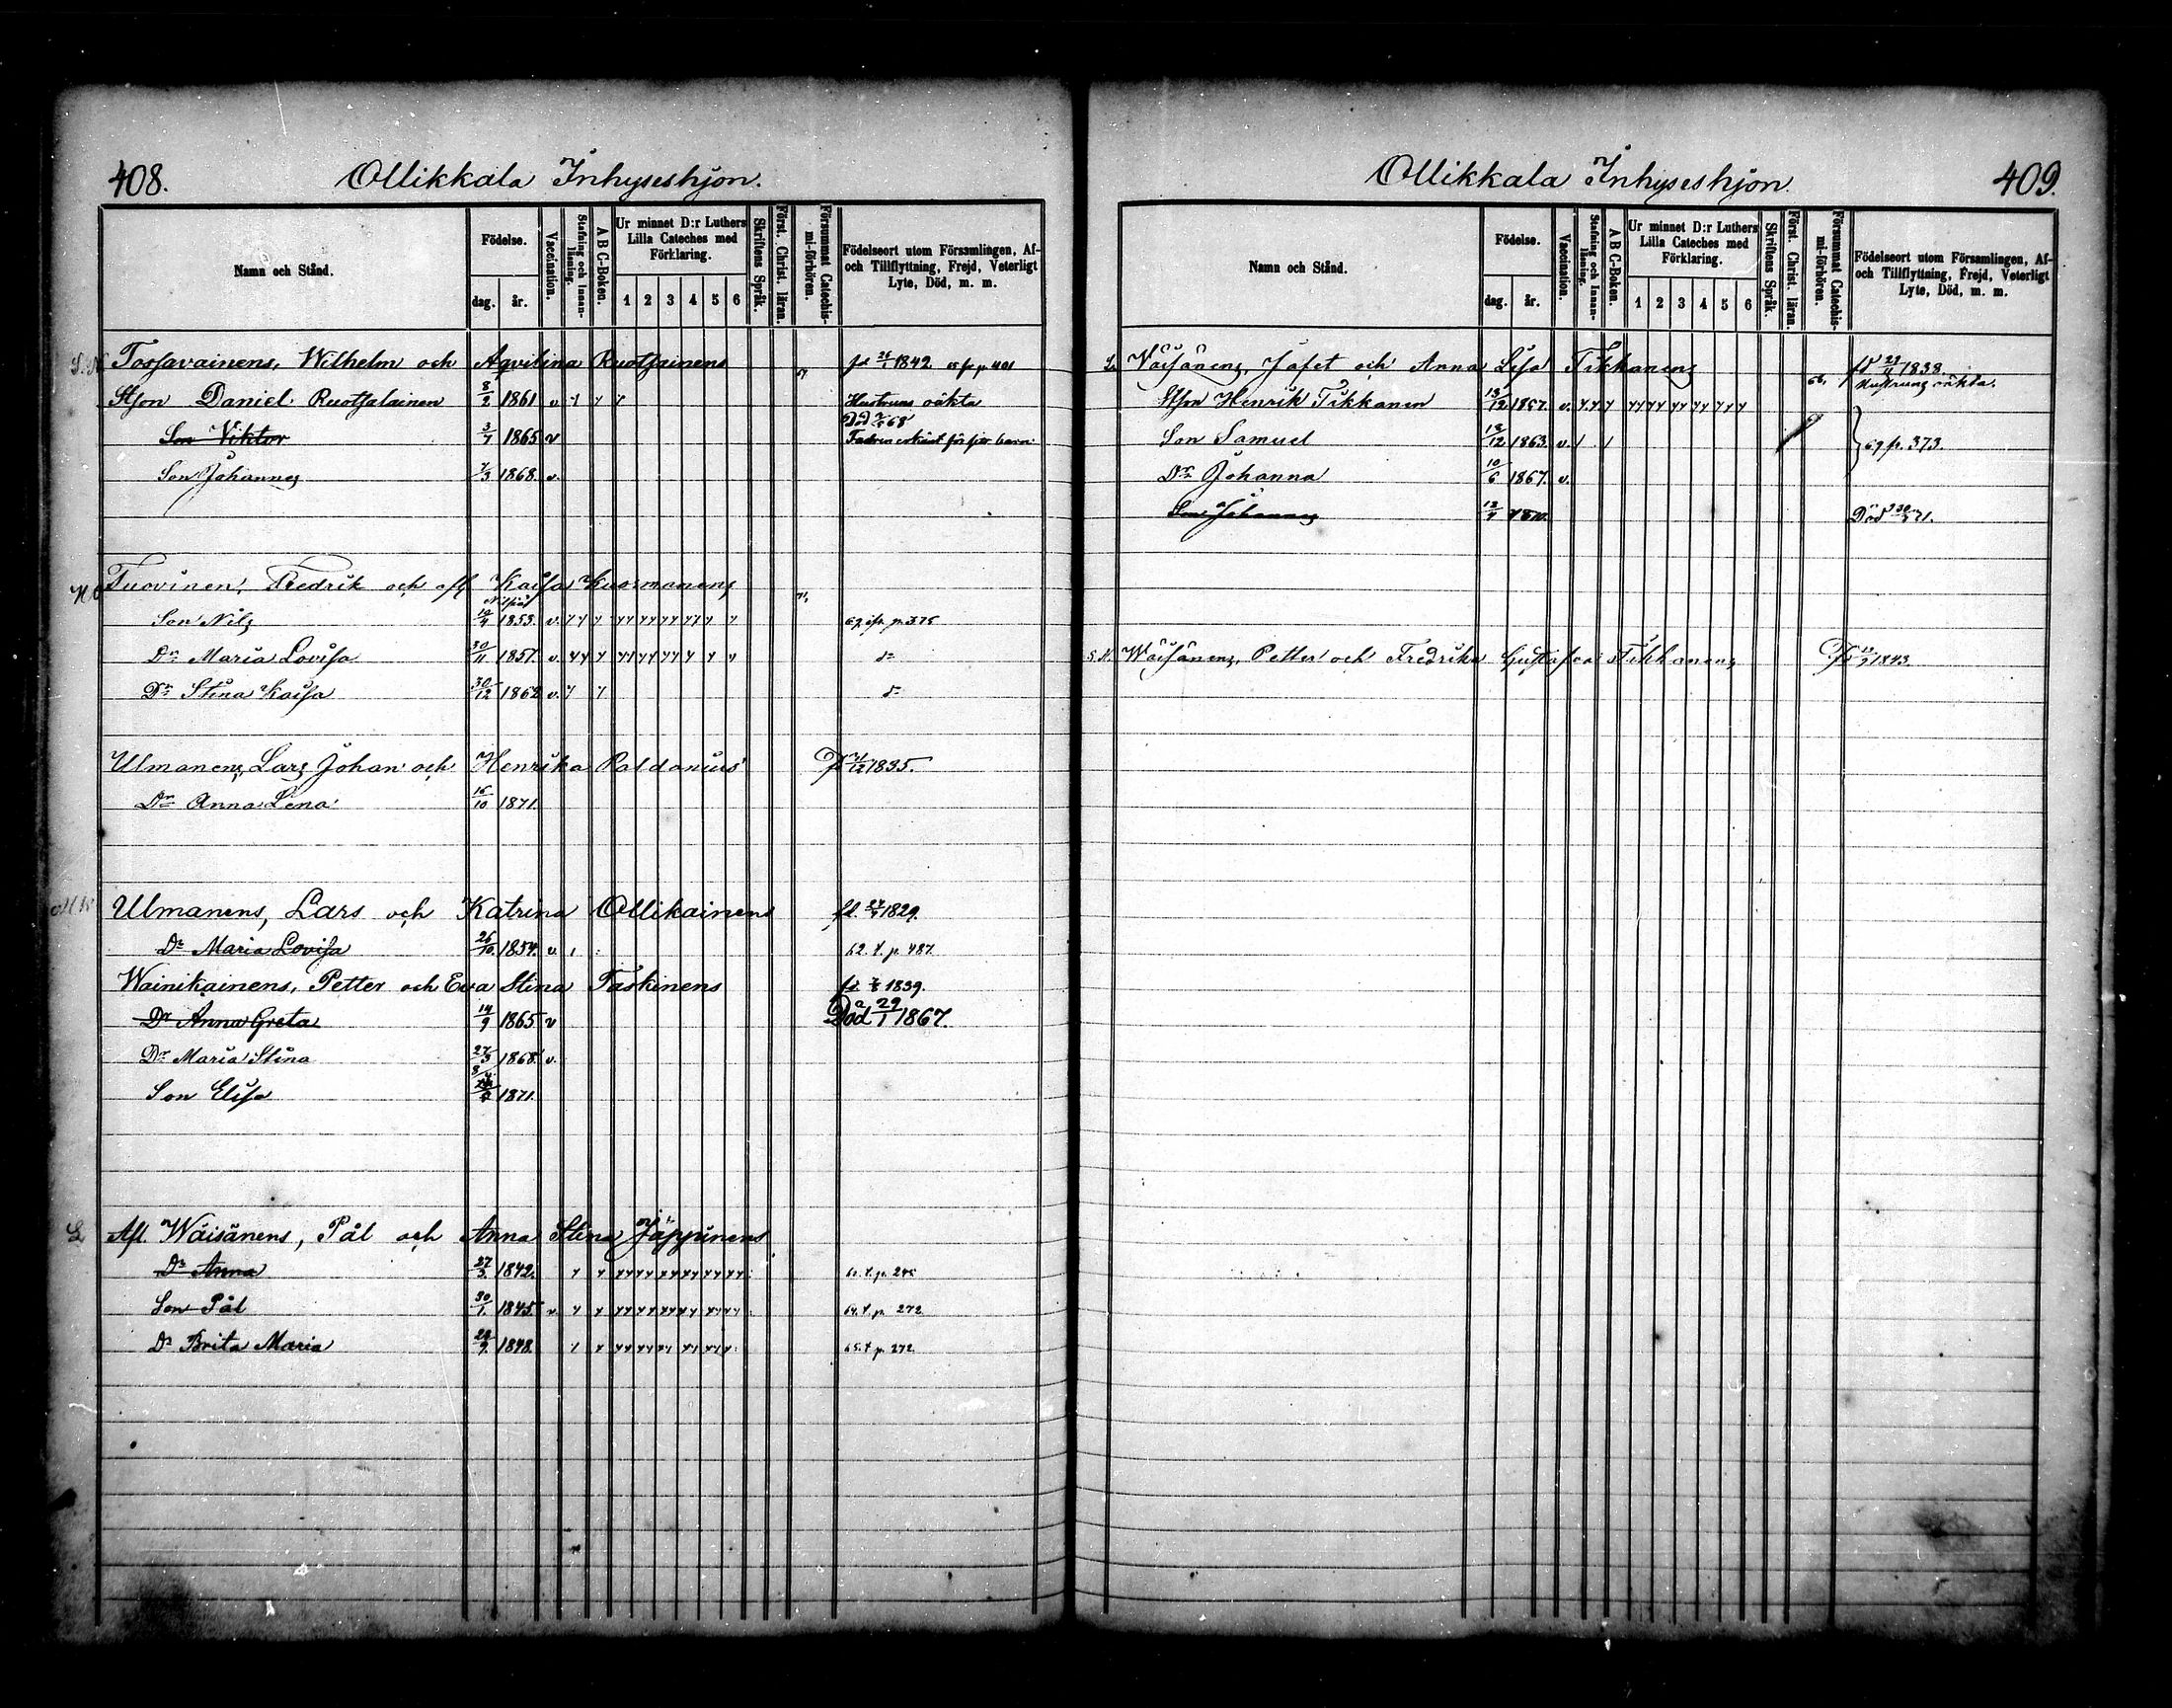 408.
Ollikkala Inhyseshjon.
Namn och Stånd.
Födelse.
dag.
år.
Vaccination.
Stafning och Innan-läsning.
A B C-Boken.
Ur minnet D:r Luthers
Lilla Cateches med
Förklaring.
1 2 3 4 5 6
Skriftens Språk.
Först. Christ. läran.
Försummat Catechis-
mi-förhören.
Födelseort utom Församlingen, Af-
och Tillflyttning, Frejd, Veterligt
Lyte, Död, m. m.
Tossavainens, Wilhelm och Aqvilina Ruotsainens 1842
Stson Daniel Ruotsalainen 8/2 1861 v Hustruns oäkta
Son Viktor 3/7 1865 v Död 68
Son Johannes 7/3 1868 v.
Tuovinen, Fredrik och Kaisa Kuosmanens
Son Nils 1853. v.
Dr Maria Lovisa 30/11 1857. v.
Dr Stina Kaisa 30/12 1862 v.
Ulmanens, Lars Johan och Henrika Paldanius 1835.
Dr Anna Lena 16/10 1871.
Ulmanens, Lars och Katrina Ollikainens fd. 1829.
Dr Maria Lovisa 26/10. 1854. v 62. f. p. 487.
Wainikainens, Petter och Eva Stina Taskinens fd. 1839.
Dr Anna Greta 14/9 1865 v Död 29/1 1867.
Dr Maria Stina 27/3 1868 v.
Son Elisa 1871.
Afl. Wäisänens, Pål och Anna Stina Jäppinens
Dr Anna 27/3. 1842.
Son Pål 30/1. 1845. v. 64. f. p. 272
Dr Brita Maria 1848. 65. f. p. 272
Ollikkala Inhyseshjon
409.
Namn och Stånd.
Födelse.
dag.
år.
Vaccination.
Stafning och Innan-läsning.
A B C-Boken.
Ur minnet D:r Luthers
Lilla Cateches med
Förklaring.
1 2 3 4 5 6
Skriftens Språk.
Först. Christ. läran.
Försummat Catechis-
mi-förhören.
Födelseort utom Församlingen, Af-
och Tillflyttning, Frejd, Veterligt
Lyte, Död, m. m.
Wäisänens, Jafet och Anna Lisa Tikkanens fd 1838.
Stson Henrik Tikkanen 13/12 1857. v. Hustruns oäkta.
Son Samuel 13/12 1863. v. 69 p. 373.
Dr Johanna 10/6 1867. v.
Son Johannes Död 71.
S. N. Wäisänens, Petter och Fredrika Gustafva Tikkanens 1843.